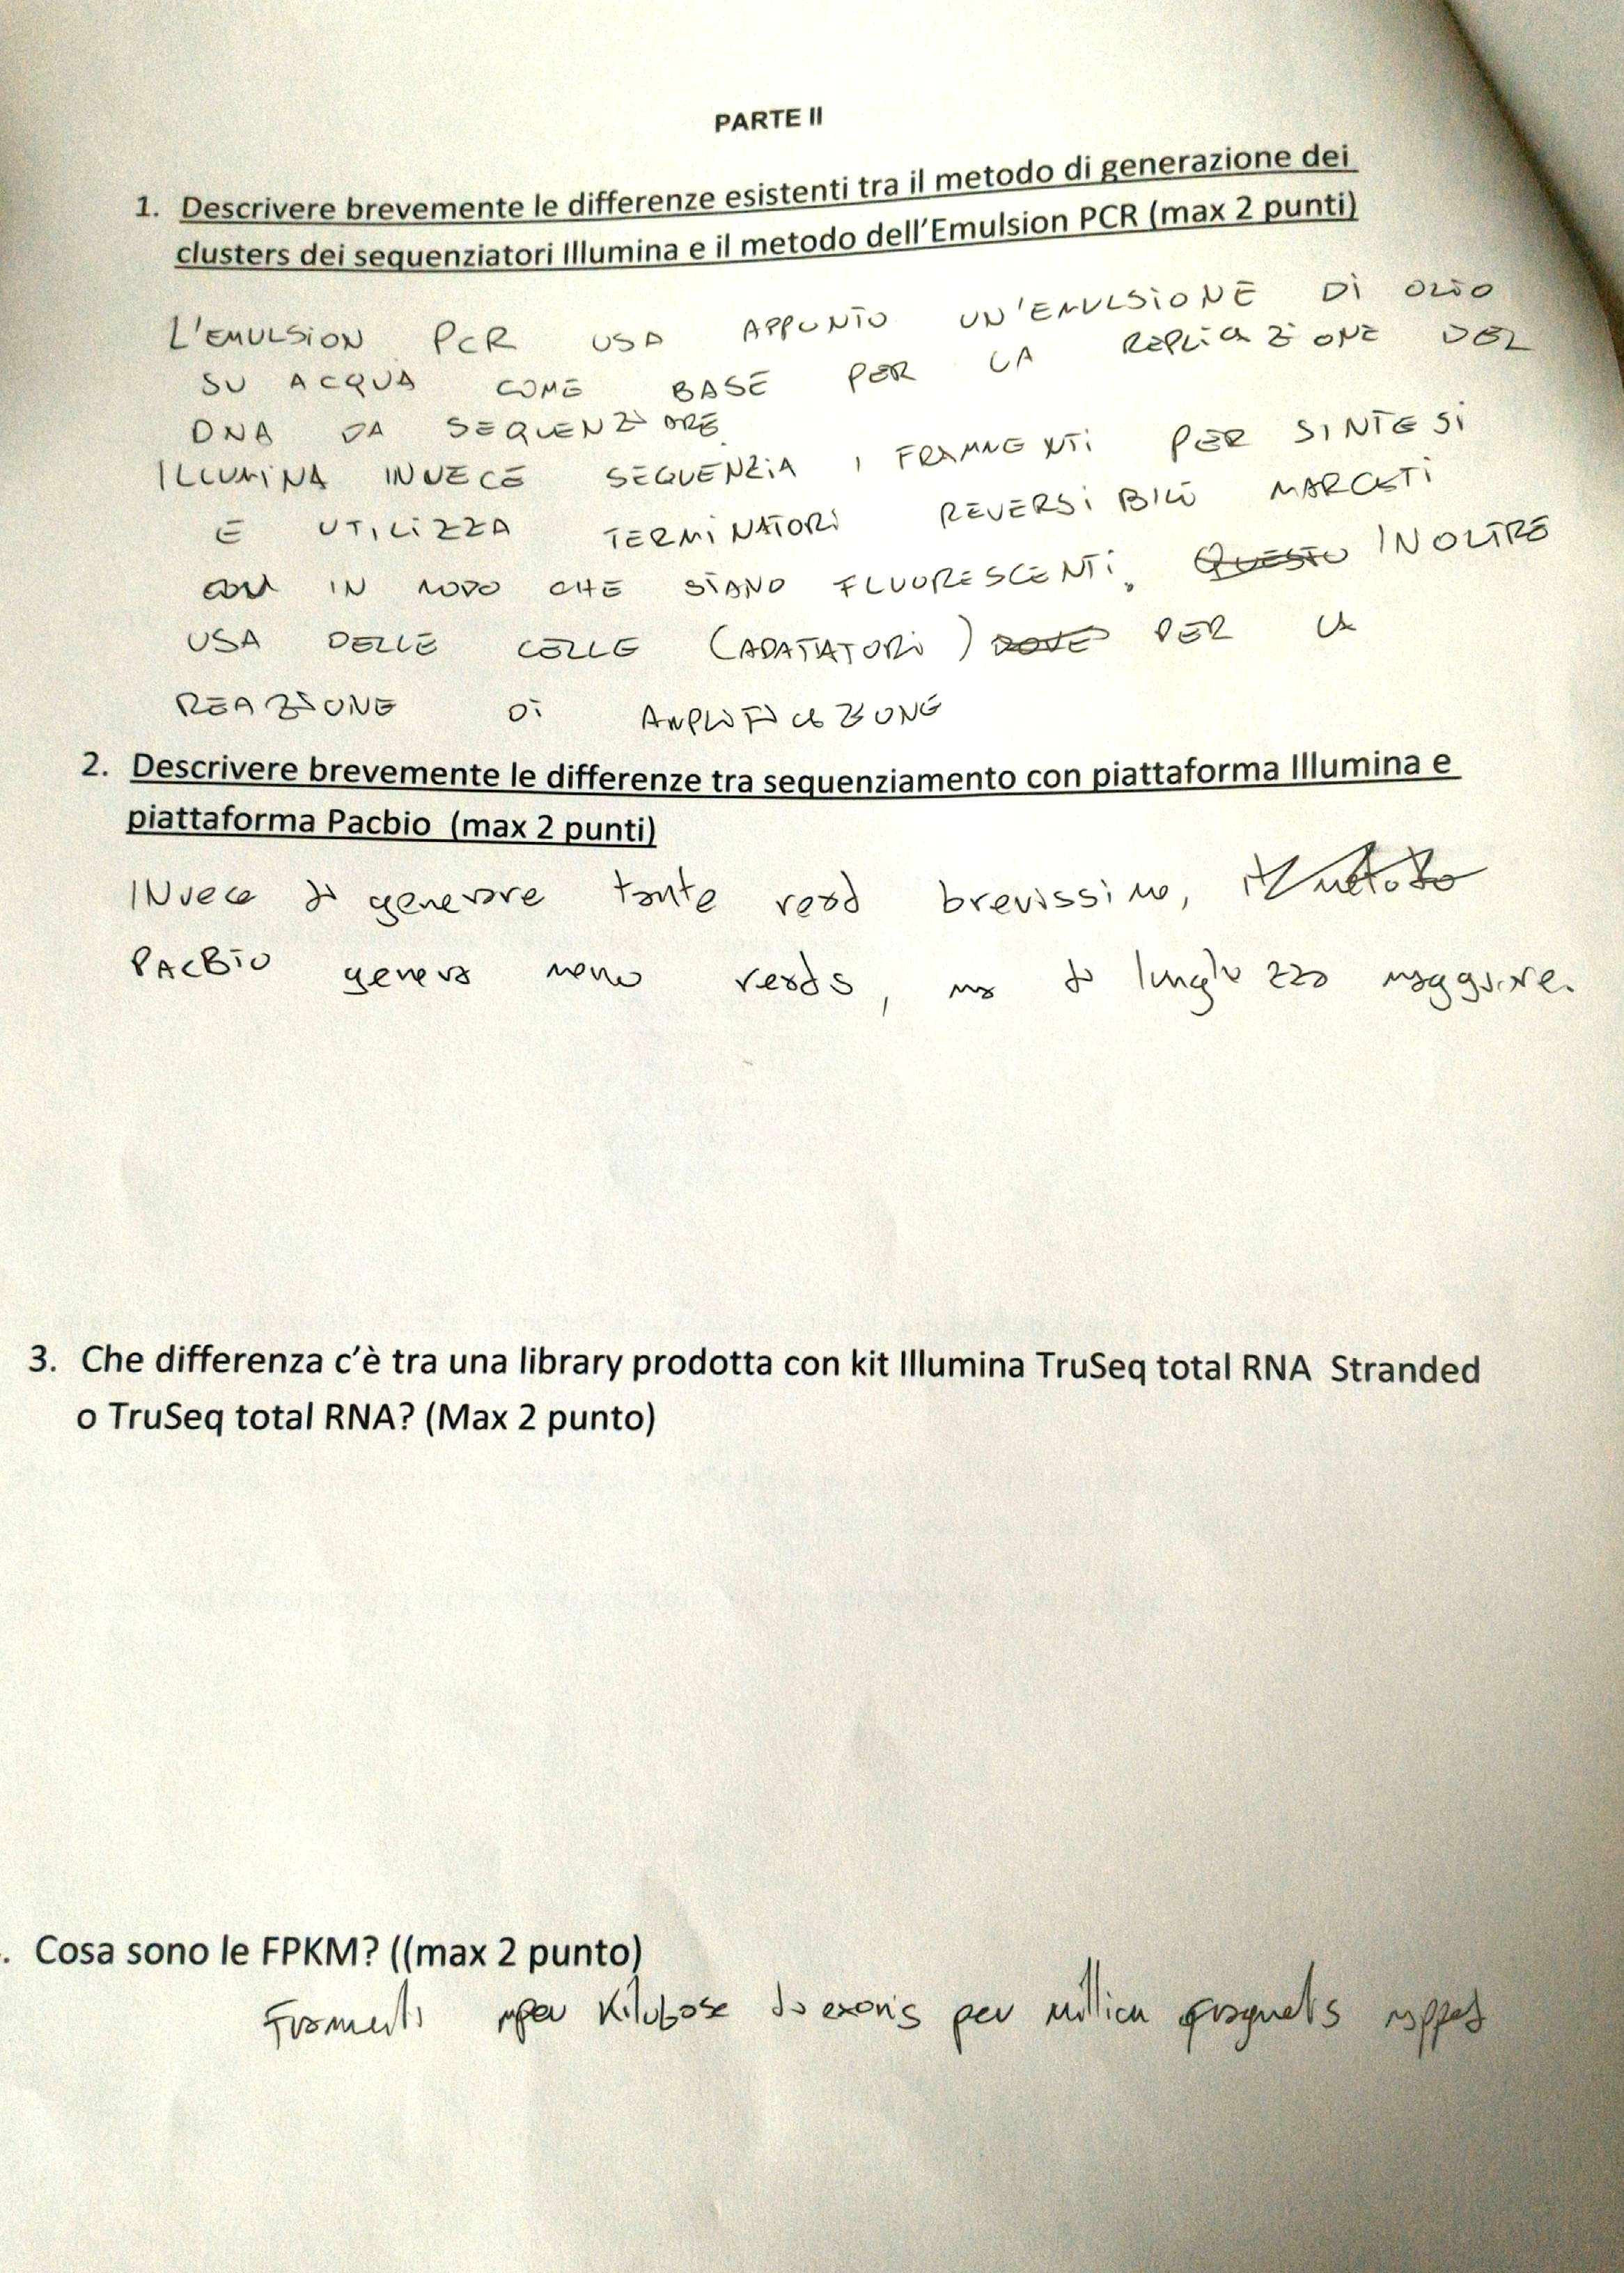 PARTE II
1. Descrivere brevemente le differenze esistenti tra il metodo di generazione dei
clusters dei sequenziatori Illumina e il metodo dell'Emulsion PCR (max 2 punti)
L'EMULSION PCR USA APPUNTO UN'EMULSIONE DI OLIO
SU ACQUA COME BASE PER LA REPLICAZIONE DEL
DNA DA SEQUENZIARE
ILLUMINA INVECE SEQUENZIA I FRAMMENTI PER SINTESI
E UTILIZZA TERMINATORI REVERSIBILI MARCATI
IN MODO CHE SIANO FLUORESCENTI. QUESTO INOLTRE
USA DELLE CELLE (ADATTATORI) DOVE PER LA
REAZIONE DI AMPLIFICAZIONE
2. Descrivere brevemente le differenze tra sequenziamento con piattaforma Illumina e
piattaforma Pacbio (max 2 punti)
INvece di generare tante read brevissime,
PACBIO genera meno reads, ma di lunghezza maggiore.
3. Che differenza c'è tra una library prodotta con kit Illumina TruSeq total RNA Stranded
o TruSeq total RNA? (Max 2 punto)
. Cosa sono le FPKM? ((max 2 punto)
per Kilobase exons per million mapped